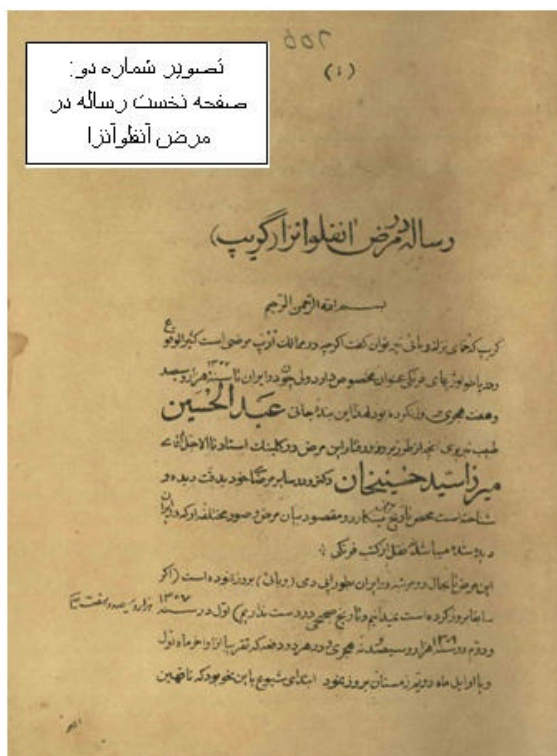 تصویر شماره دو:
صفحه نخست رساله در
مرض آنفلوآنزا
(۱)
رساله در مرض انفلوانزا (گریپ)
بسم الله الرحمن الرحیم
کریپ که حمای نزله وبائی نیز توان گفت اگرچه در ممالک اروپ مرضی است کثیر الوقوع
و در پاطولوژیهای فرنگی عنوان مخصوص دارد ولی چون در ایران تا سنه هزار و سیصد
و هفت هجری بروز نکرده بود لهذا این بنده جانی عبدالحسین
طبیب تبریزی از طرز بروز و رفتار این مرض در کلینیک استاد
میرزا سید حسینخان دکتر و در سایر مرضا خود بدقت دیده و
شناخته است محض تاریخ مینکارد و مقصود بیان مرض و صور مختلفه او که در ایران
دیده شده میباشد نه نقل از کتب فرنگی
این مرض تا بحال دو مرتبه در ایران بطور اپی دمی (وبائی) بروز نموده است (اگر
سابقا بروز کرده است نمیدانیم و تاریخ صحیحی در دست نداریم) اول در سنه ۱۳۰۷ هزار و سیصد و هفت
و دوم در سنه ۱۳۰۹ هزار و سیصد و نه هجری و در هر دو دفعه که تقریبا از اواخر ماه اول
و یا اوایل ماه دویم زمستان بروز نمود ابتدای شیوع باین نحو بود که ناقهین